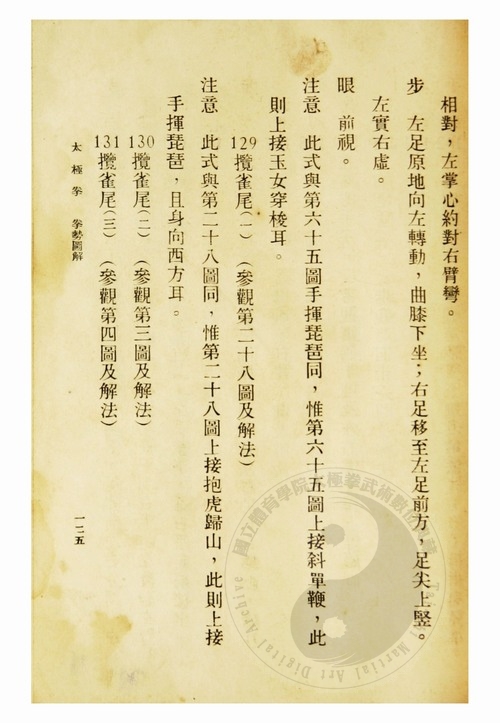 相對，左掌心約對右臂彎。
步　左足原地向左轉動，曲膝下坐；右足移至左足前方，足尖上竪。
左實右虛。
眼　前視。
注意　此式與第六十五圖手揮琵琶同，惟第六十五圖上接斜單鞭，此
則上接玉女穿梭耳。
129攬雀尾(一)　(參觀第二十八圖及解法)
注意　此式與第二十八圖同，惟第二十八圖上接抱虎歸山，此則上接
手揮琵琶，且身向西方耳。
130攬雀尾(二)　(參觀第三圖及解法)
131攬雀尾(三)　(參觀第四圖及解法)
太極拳　拳勢圖解
一二五
國立體育學院太極拳武術數位典藏
Martial Art Digital Archive